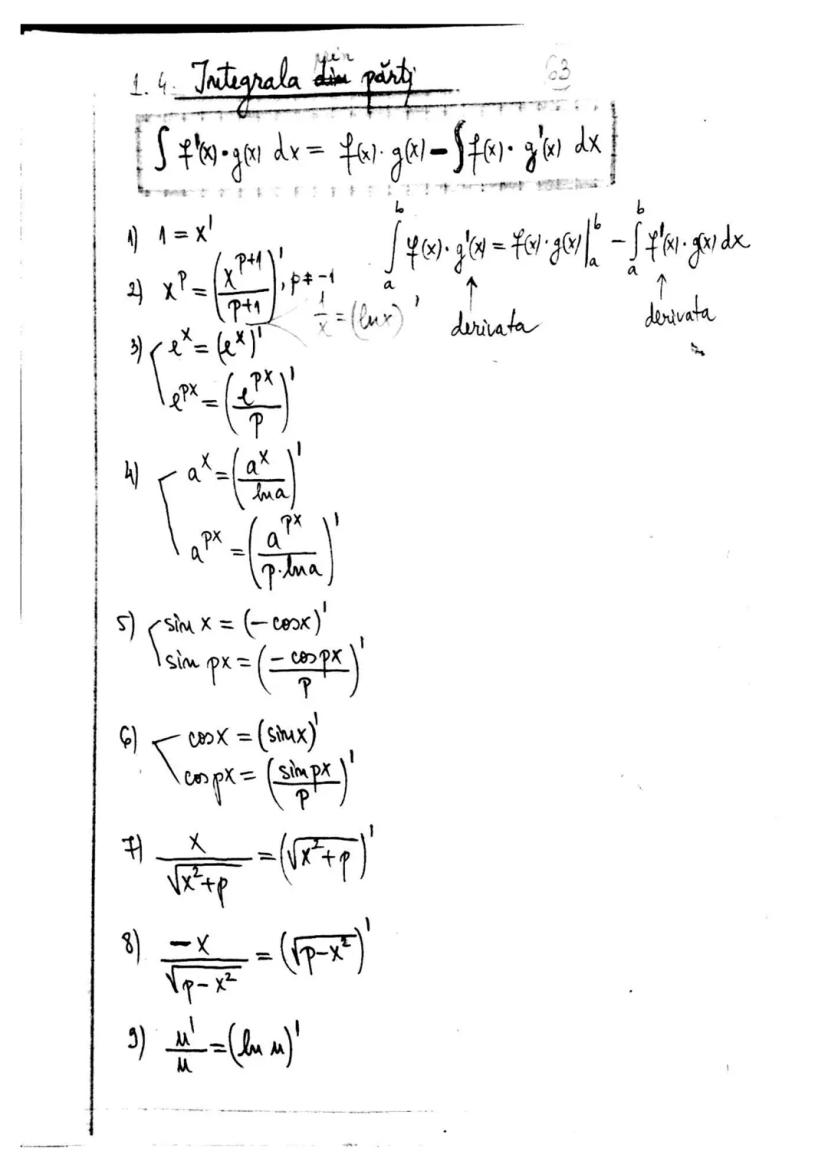 1.4. Integrala din prin părți 63
∫ f'(x)·g(x) dx = f(x)·g(x) − ∫ f(x)·g'(x) dx
1) 1 = x'
∫_a^b f(x)·g'(x) = f(x)·g(x)|_a^b − ∫_a^b f'(x)·g(x) dx
↑ derivata ↑ derivata
2) x^p = (x^(p+1)/(p+1))', p ≠ −1
1/x = (ln x)'
3) e^x = (e^x)'
e^(px) = (e^(px)/p)'
4) a^x = (a^x/ln a)'
a^(px) = (a^(px)/(p·ln a))'
5) sin x = (−cos x)'
sin px = (−cos px/p)'
6) cos x = (sin x)'
cos px = (sin px/p)'
7) x/√(x²+p) = (√(x²+p))'
8) −x/√(p−x²) = (√(p−x²))'
9) u'/u = (ln u)'